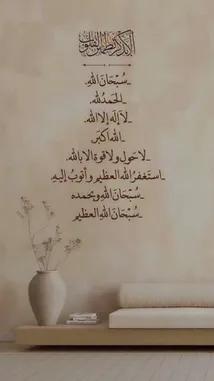 ألا بذكر الله تطمئن القلوب
_سُبْحَانَ اللهِ.
_الحَمدُ لله.
_لا إله إلا الله.
_الله اكبر.
_لا حَول ولا قوة الا بالله.
_استغفرُ الله العظيم وأتوبُ إليهِ
_سُبْحَانَ اللهِ وبحمده
_سُبْحَانَ اللهِ العظيم